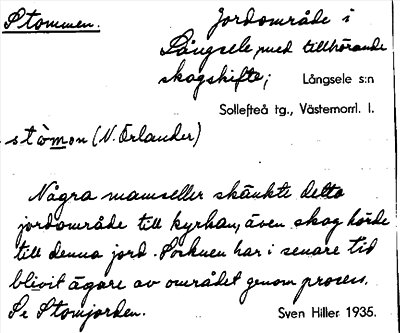 Stommen.
Jordområde i
Långsele, med tillhörande
skogskifte;
Långsele s:n
Sollefteå tg., Västernorrl. l.
stòmon (N. Örlander)
Några mamseller skänkte detta
jordområde till kyrkan, även skog hörde
till denna jord. Socknen har i senare tid
blivit ägare av området genom process.
Se Stomjorden.
Sven Hiller 1935.